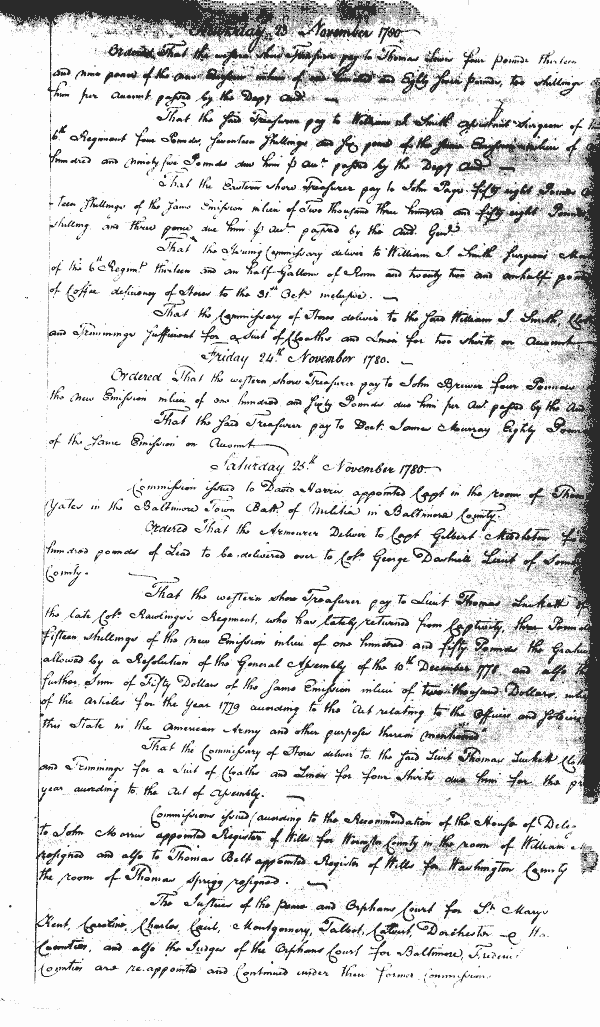 Thursday 23 November 1780
Ordered That the western shore Treasurer pay to Thomas Lewis four pounds thirteen
and nine pence of the new Emission in lieu of one hundred and Eighty four Pounds, two shillings
him per Account passed by the Depy Aud.
That the said Treasurer pay to William I. Smith Surgeon of the
6th Regiment four Pounds Seventeen Shillings and six pence of the same Emission in lieu of
hundred and ninety five Pounds due him p Acct. passed by the Depy Aud
That the Eastern shore Treasurer pay to John Page fifty eight Pounds
-teen Shillings of the same Emission in lieu of Two thousand three hundred and fifty eight Pounds
shilling and three pence due him p Acct passed by the Aud. Genl.
That the Issuing Commissary deliver to William I. Smith Surgeons Mate
of the 6th Regimt. thirteen and an half Gallons of Rum and twenty two and an half pounds
of Coffee deficiency of Stores to the 31st Octr. inclusive.
That the Commissary of Stores deliver to the said William I. Smith, Cloth
and Trimmings sufficient for a Suit of Cloaths and Linen for two Shirts on Account
Friday 24th November 1780.
Ordered That the western shore Treasurer pay to John Brewer four Pounds
the new Emission in lieu of one hundred and sixty Pounds due him per Acct. passed by the Aud
That the said Treasurer pay to Doct. James Murray Eighty Pounds
of the same Emission on Account
Saturday 25th November 1780
Commission issued to David Harris appointed Capt in the room of Thomas
Yates in the Baltimore Town Batt. of Militia in Baltimore County.
Ordered That the Armourer Deliver to Capt Gilbert Middleton
hundred pounds of Lead to be delivered over to Colo. George Dashiell Lieut of Somerset
County.
That the western shore Treasurer pay to Lieut Thomas Luckett of
the late Colo. Rawlings's Regiment, who has lately returned from Captivity, three Pounds
fifteen shillings of the new Emission in lieu of one hundred and fifty Pounds the Gratuity
allowed by a Resolution of the General Assembly of the 10th December 1778 and also the
further Sum of Fifty Dollars of the same Emission in lieu of two thousand Dollars, in lieu
of the Articles for the Year 1779 according to the "Act relating to the Officers and Soldiers
this State in the American Army and other purposes therein mentioned"
That the Commissary of Stores deliver to the said Lieut Thomas Luckett Cloth
and Trimmings for a Suit of Cloaths and Linen for four Shirts due him for the pre
year according to the Act of Assembly.
Commissions issued according to the Recommendation of the House of Dele
to John Morris appointed Register of Wills for Worcester County in the room of William
resigned and also to Thomas Belt appointed Register of Wills for Washington County
the room of Thomas Sprigg resigned.
The Justices of the peace and Orphans Court for St. Marys
Kent, Caroline, Charles, Cecil, Montgomery, Talbot, Calvert, Dorchester & Ha
Counties, and also the Judges of the Orphans Court for Baltimore, Frederic
Counties are re-appointed and Continued under their former Commissions